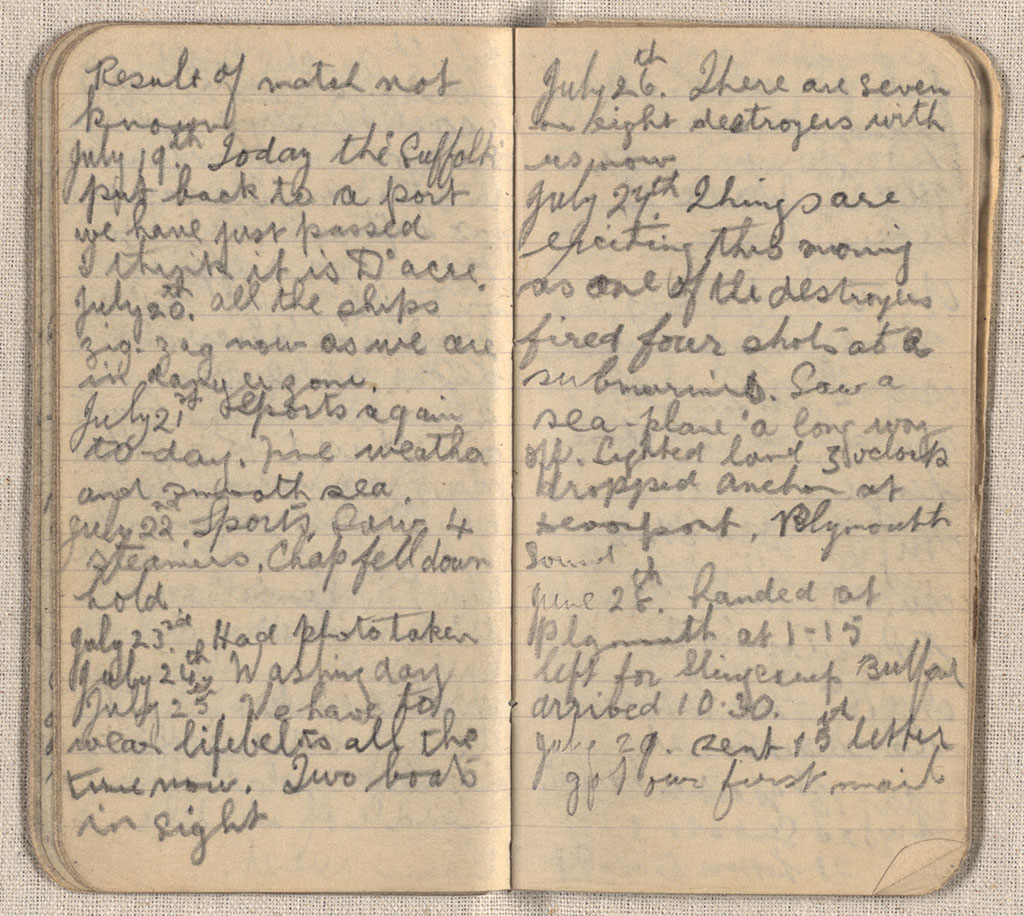 Result of match not
known
July 19th. Today the Suffolk
put back to a port
we have just passed
I think it is D'acre.
July 20th. all the ships
zig-zag now as we are
in danger zone.
July 21st Sports again
to-day. Fine weather
and smooth sea.
July 22nd. Sports, 4
steamers, Chap fell down
hold.
July 23rd. Had photo taken
July 24th Washing day
July 25th We have to
wear lifebelts all the
time now. Two boats
in sight
July 26th. There are seven
or eight destroyers with
us now
July 27th. Things are
exciting this morning
as one of the destroyers
fired four shots at a
submarine. Saw a
sea-plane a long way
off. Sighted land 3 oclock
dropped anchor at
Devonport, Plymouth
Sound
June 28th. Landed at
Plymouth at 1-15
left for Bulford
arrived 10.30.
July 29. sent 1st letter
got our first mail